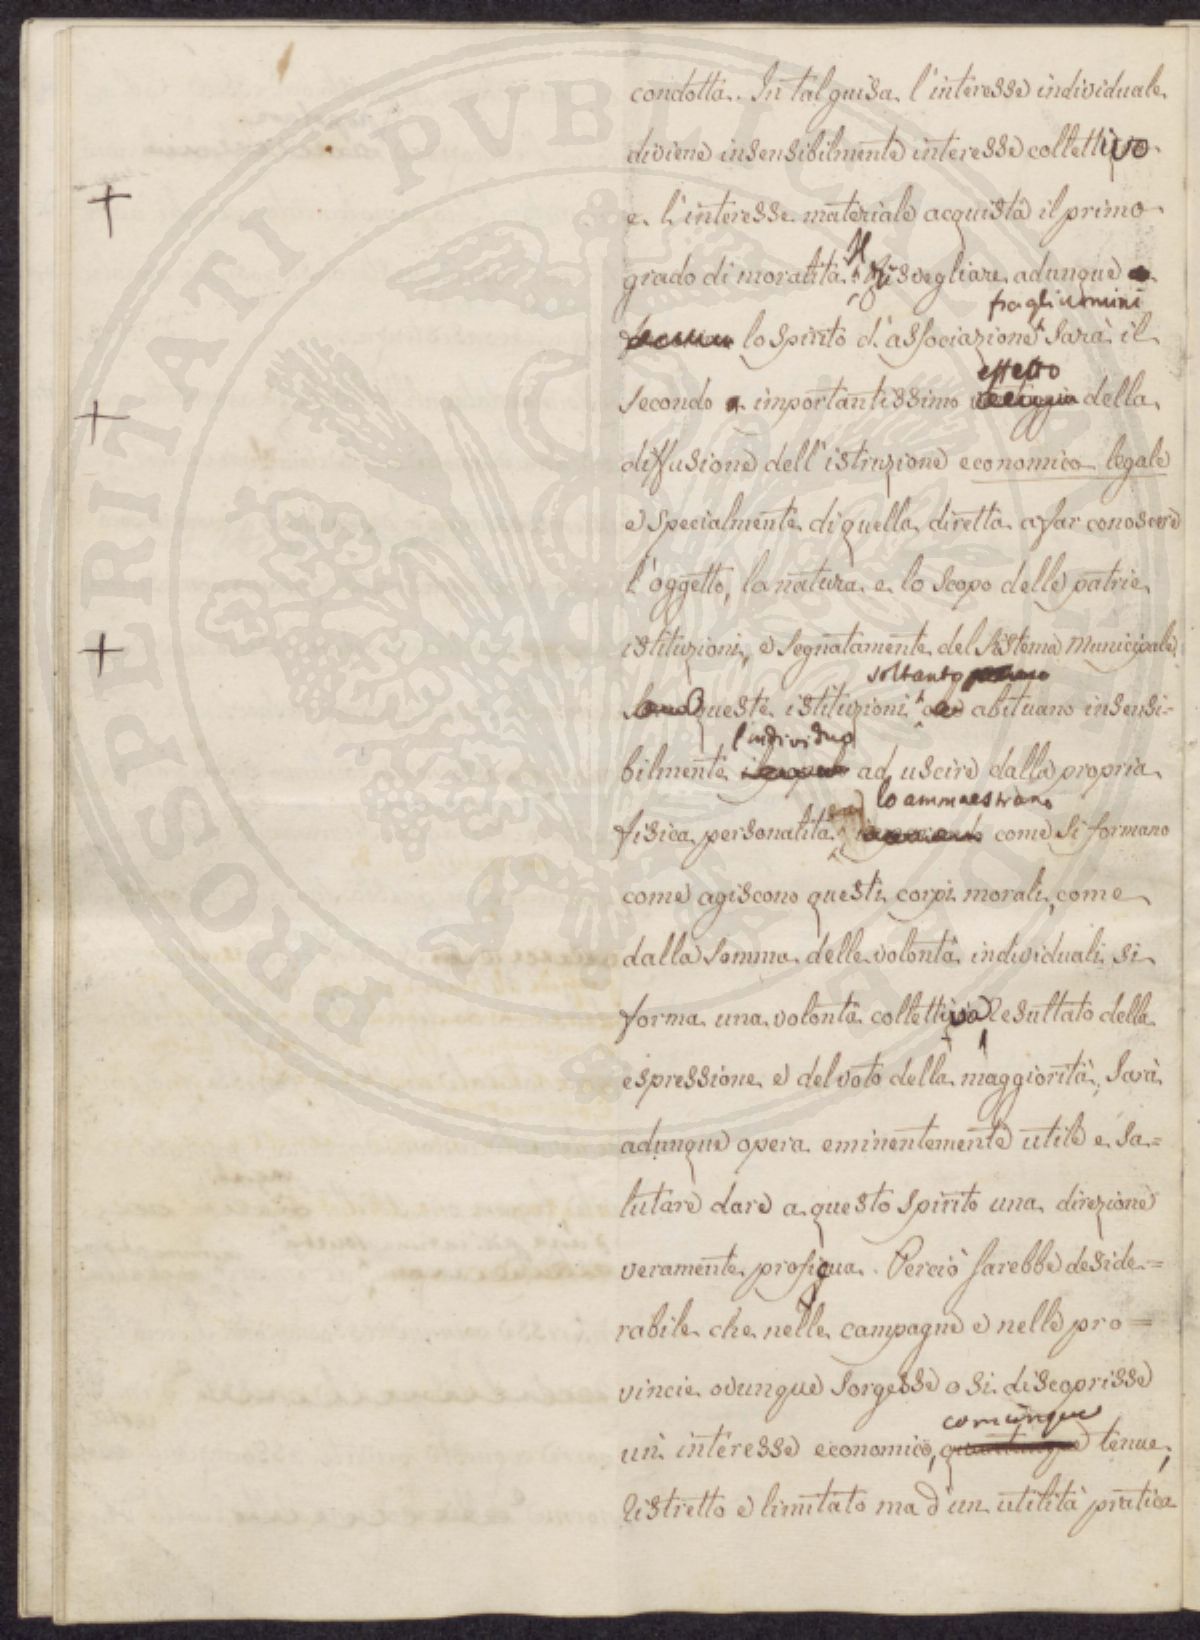 condotta. In tal guisa l'interesse individuale
diviene insensibilmente interesse collettivo
e l'interesse materiale acquista il primo
grado di moralità. Il risvegliare adunque
fra gli uomini
lo spirito d'associazione sarà il
effetto
secondo importantissimo della
diffusione dell'istruzione economico legale
e specialmente di quella diretta a far conoscere
l'oggetto, la natura e lo scopo delle patrie
istituzioni, e segnatamente del sistema Municipale.
soltanto
Queste istituzioni abituano insensi=
l'individuo
bilmente ad uscire dalla propria
lo ammaestrano
fisica personalità come si formano
come agiscono questi corpi morali, come
dalla somma delle volontà individuali si
forma una volontà collettiva resultato della
espressione e del voto della maggiorità. Sarà
adunque opera eminentemente utile e sa=
lutare dare a questo spirito una direzione
veramente proficua. Perciò sarebbe deside=
rabile che nelle campagne e nelle pro=
vincie ovunque sorgesse o si discoprisse
comunque
un interesse economico, tenue,
ristretto e limitato ma d'un utilità pratica
PROSPERITATI PVBLICAE